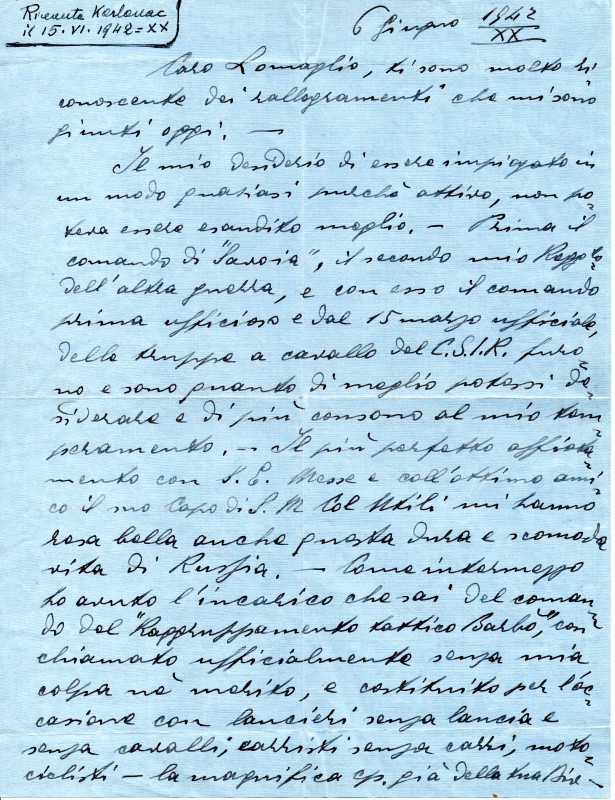 Ricevuta Karlovac
il 15. VI. 1942 = XX
6 Giugno 1942
XX
Caro Lomaglio, ti sono molto ri
conoscente dei rallegramenti che mi sono
giunti oggi. —
Il mio desiderio di essere impiegato in
un modo qualsiasi purchè attivo, non po=
teva essere esaudito meglio. — Prima il
comando di "Savoia", il secondo mio Regg.to
dell'altra guerra, e con esso il comando
prima ufficioso e dal 15 marzo ufficiale,
delle truppe a cavallo del C.S.I.R. furo=
no e sono quanto di meglio potessi de=
siderare e di più consono al mio tem=
peramento. — Il più perfetto affiata=
mento con S. E. Messe e coll'ottimo ami=
co il suo Capo di S. M. Col Utili mi hanno
resa bella anche questa dura e scomoda
vita di Russia. — Come intermezzo
ho avuto l'incarico che sai del coman=
do del "Raggruppamento tattico Barbò", così
chiamato ufficialmente senza mia
colpa nè merito, e costituito per l'oc=
casione con lancieri senza lancia e
senza cavalli, carristi senza carri, moto
ciclisti — la magnifica cp. già della tua